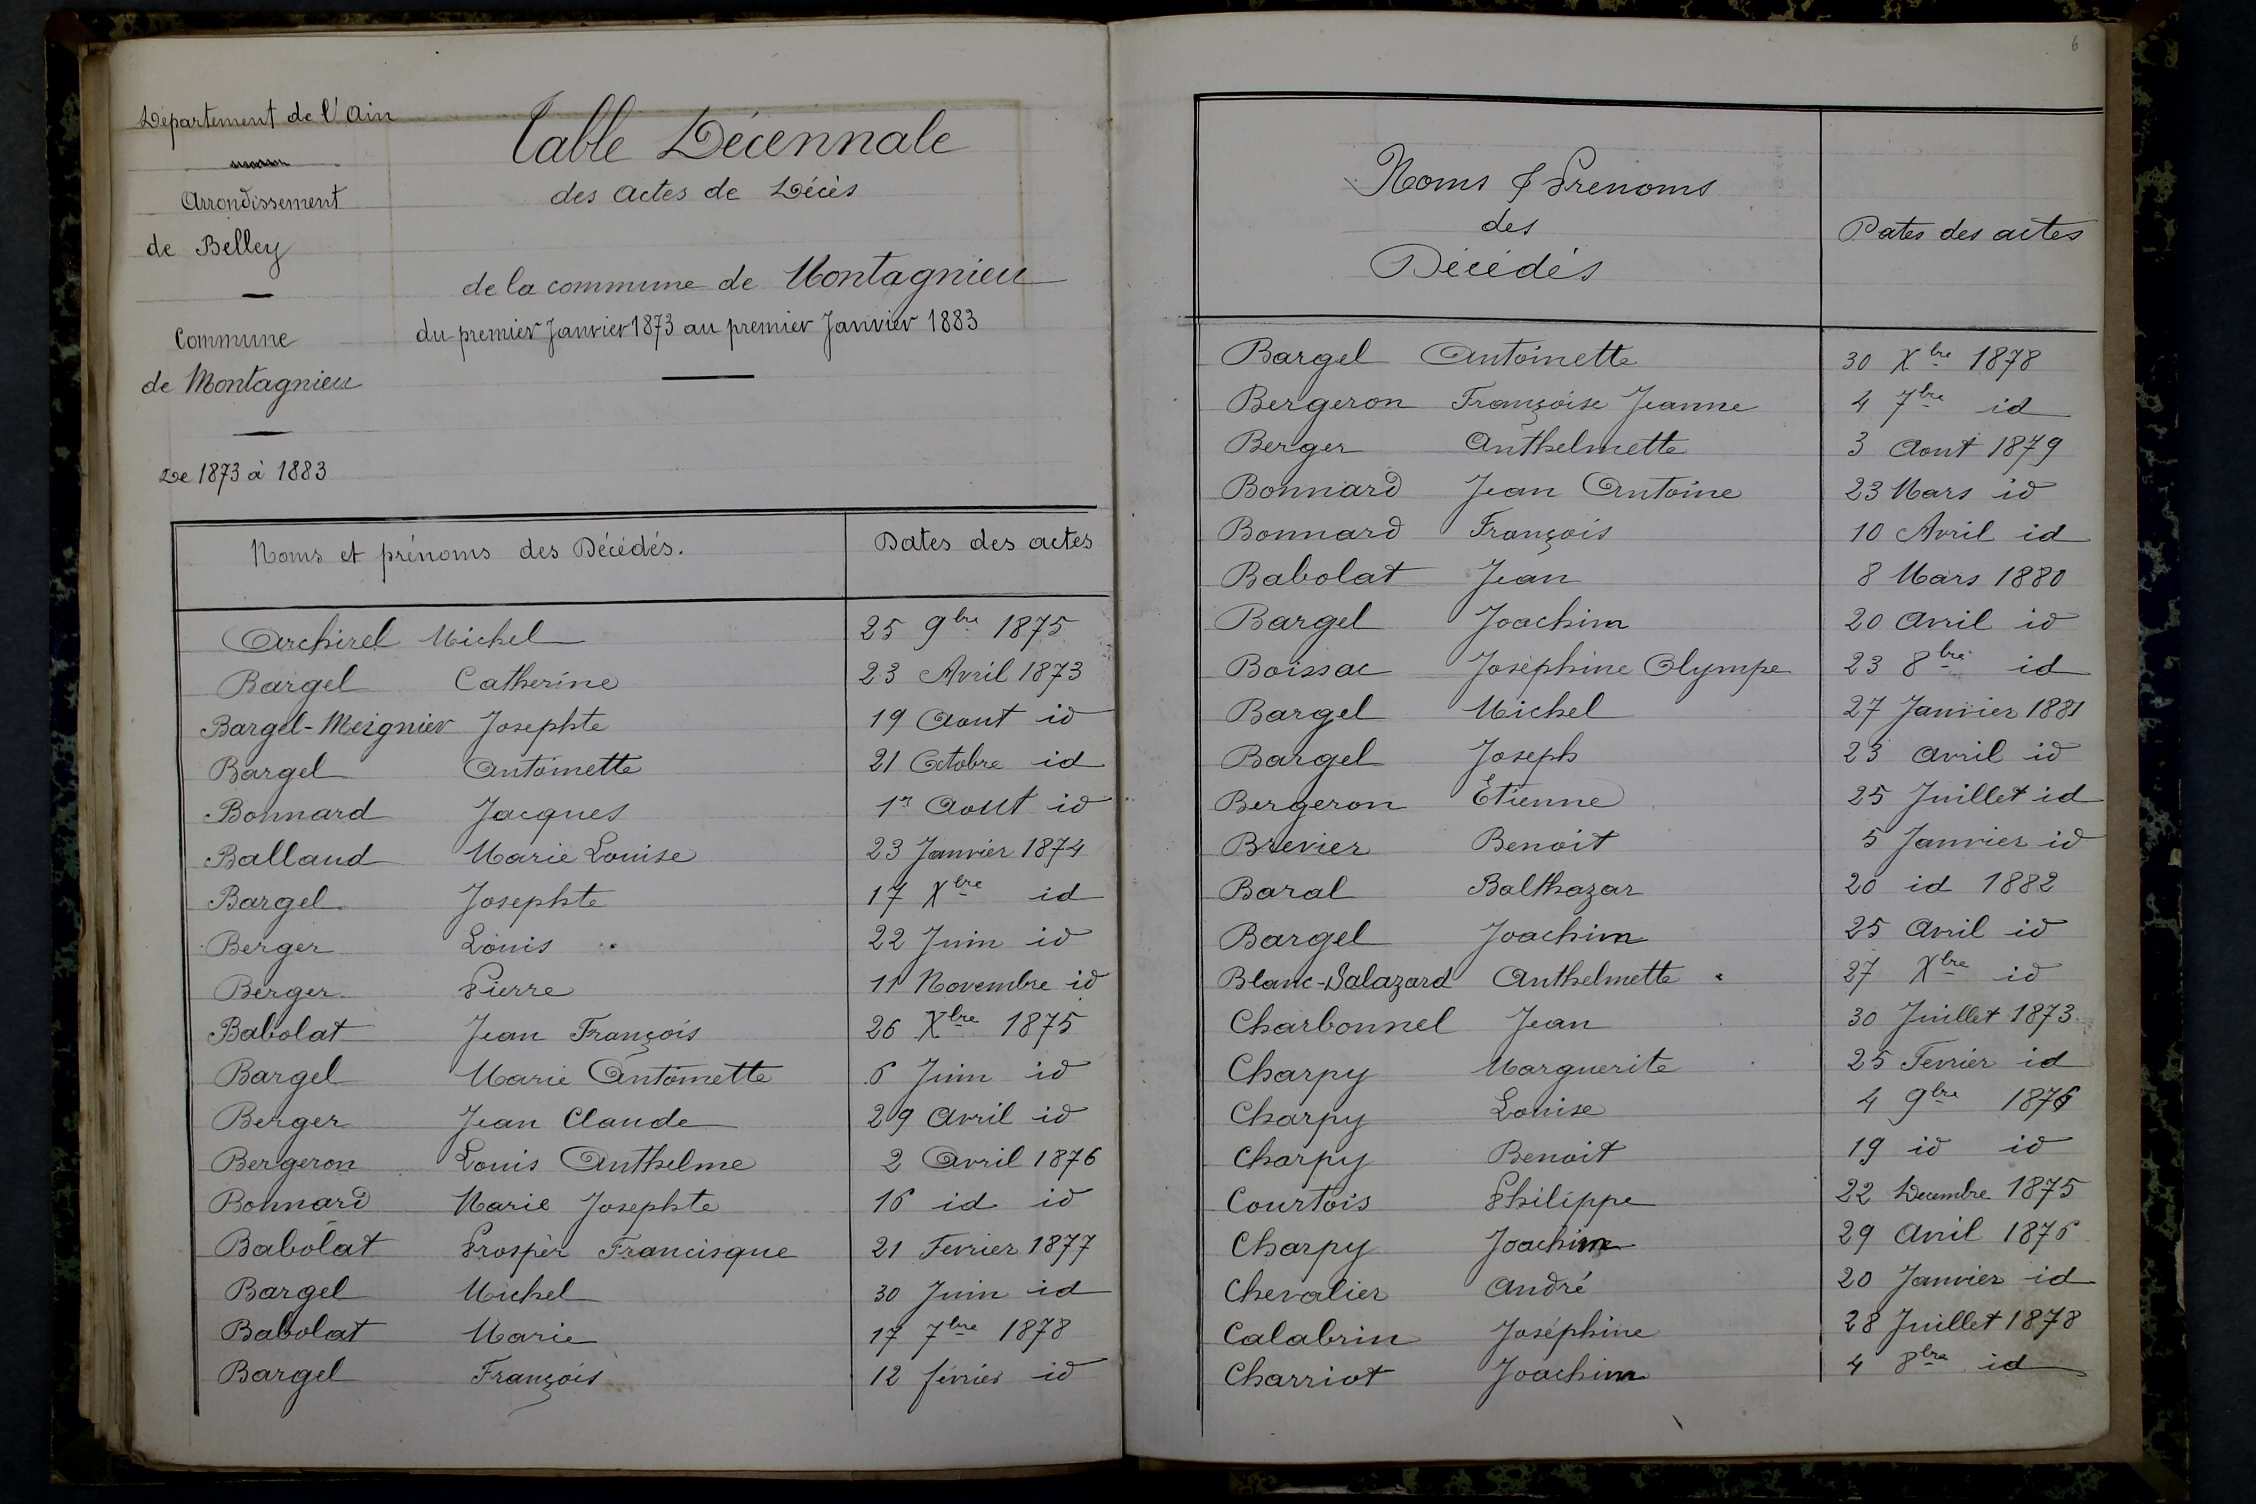 Département de l'Ain
Arrondissement
de Belley
Commune
de Montagnieu
De 1873 à 1883
Table Décennale
des actes de Décès
de la commune de Montagnieu
du premier Janvier 1873 au premier Janvier 1883
Noms et prénoms des Décédés. Dates des actes
Archirel Michel 25 9bre 1875
Bargel Catherine 23 Avril 1873
Bargel-Meignier Josephte 19 Aout id
Bargel Antoinette 21 Octobre id
Bonnard Jacques 1er Aout id
Balland Marie Louise 23 Janvier 1874
Bargel Josephte 17 Xbre id
Berger Louis 22 Juin id
Berger Pierre 11 Novembre id
Babolat Jean François 26 Xbre 1875
Bargel Marie Antoinette 6 Juin id
Berger Jean Claude 29 Avril id
Bergeron Louis Anthelme 2 Avril 1876
Bonnard Marie Josephte 16 id id
Babolat Prospèr Francisque 21 Fevrier 1877
Bargel Michel 30 Juin id
Babolat Marie 17 7bre 1878
Bargel François 12 février id
6
Noms & Prenoms
des
Décédés
Dates des actes
Bargel Antoinette 30 Xbre 1878
Bergeron Françoise Jeanne 4 7bre id
Berger Anthelmette 3 Aout 1879
Bonnard Jean Antoine 23 Mars id
Bonnard François 10 Avril id
Babolat Jean 8 Mars 1880
Bargel Joachim 20 Avril id
Boissac Joséphine Olympe 23 8bre id
Bargel Michel 27 Janvier 1881
Bargel Joseph 23 Avril id
Bergeron Etienne 25 Juillet id
Brevier Benoit 5 Janvier id
Baral Balthazar 20 id 1882
Bargel Joachim 25 Avril id
Blanc-Salazard Anthelmette 27 Xbre id
Charbonnel Jean 30 Juillet 1873
Charpy Marguerite 25 Fevrier id
Charpy Louise 4 9bre 1876
Charpy Benoit 19 id id
Courtois Philippe 22 Decembre 1875
Charpy Joachim 29 Avril 1876
Chevalier André 20 Janvier id
Calabrin Joséphine 28 Juillet 1878
Charriot Joachim 4 8bre id